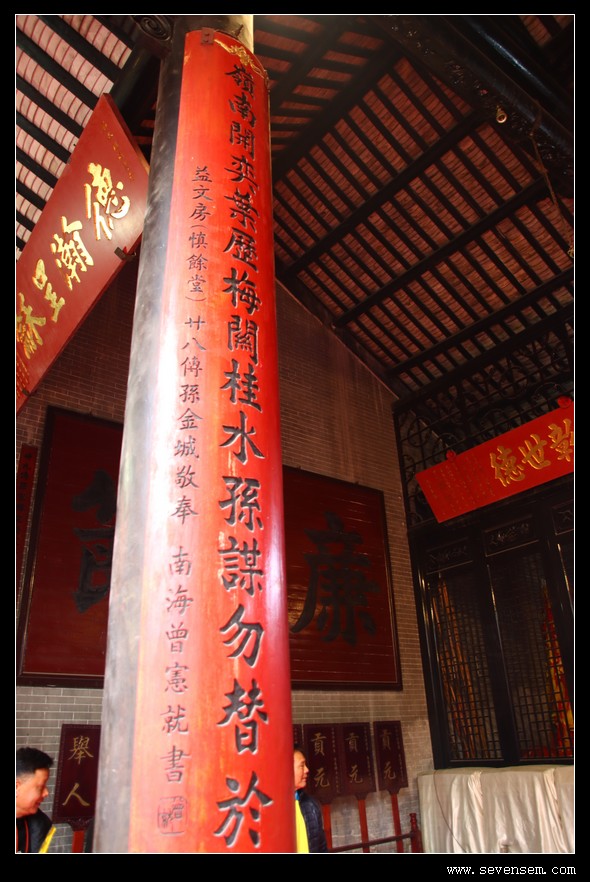 嶺南開奕葉歷梅關桂水孫謀勿替於
益文房(慎餘堂)廿八傳孫金城敬奉 南海曾憲就書
德瀚星
廉
世德
舉人
貢元
貢元
貢元
www.sevensem.com